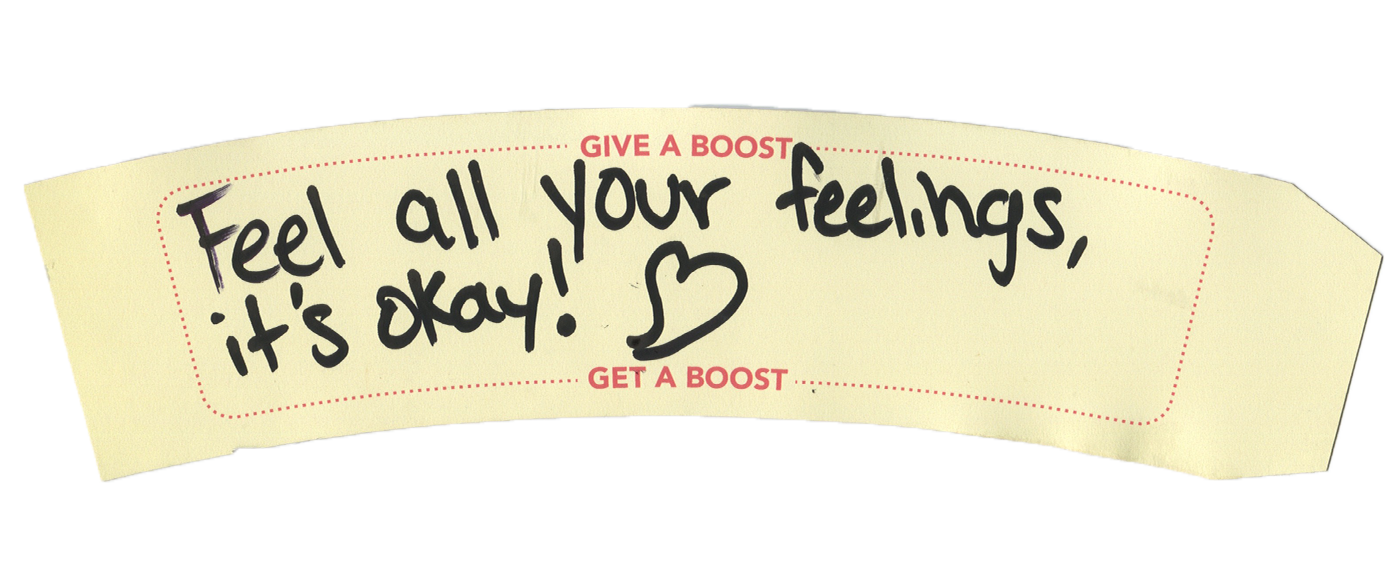 GIVE A BOOST
Feel all your feelings,
it's okay!
GET A BOOST